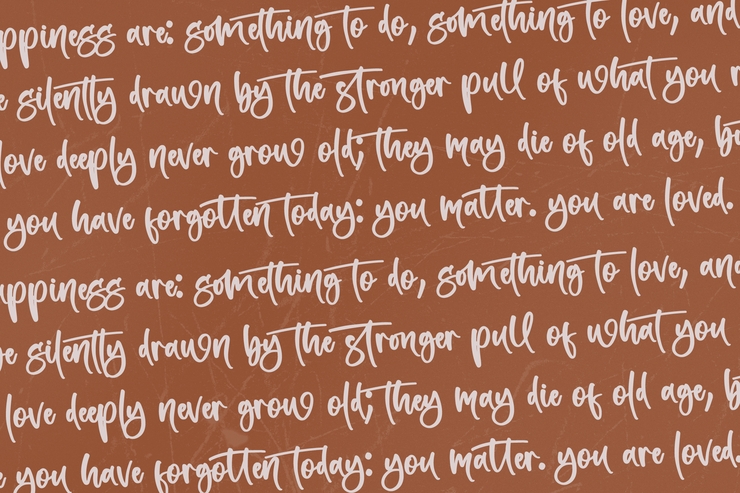 ppiness are: something to do, something to love, and
e silently drawn by the stronger pull of what you r
love deeply never grow old; they may die of old age, bu
you have forgotten today: you matter. you are loved.
appiness are: something to do, something to love, and
be silently drawn by the stronger pull of what you
love deeply never grow old; they may die of old age, b
e you have forgotten today: you matter. you are loved.